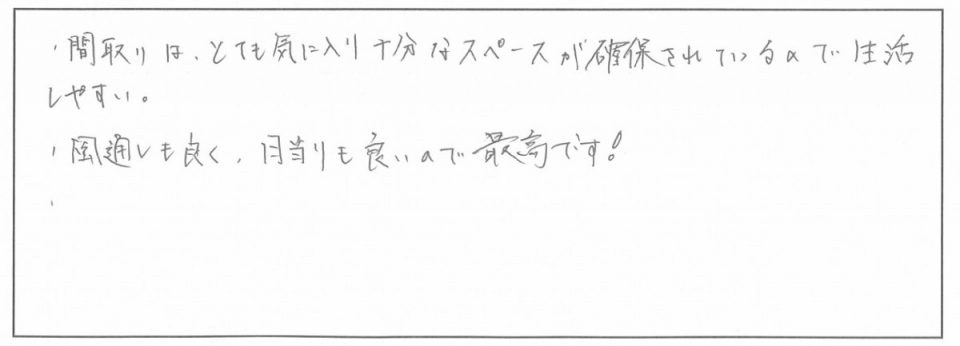 ・間取りは、とても気に入り十分なスペースが確保されているので生活
しやすい。
・風通しも良く、日当りも良いので最高です!
・